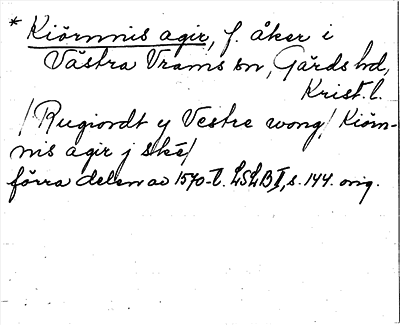 * Kiörnnis agir, f. åker i
Västra Vrams sn, Gärds hd,
Krist. l.
/Rugiordt y Vestre wong/ Kiörn-
nis agir j ské/
förra delen av 1570-t. LSLB II, s. 144. orig.